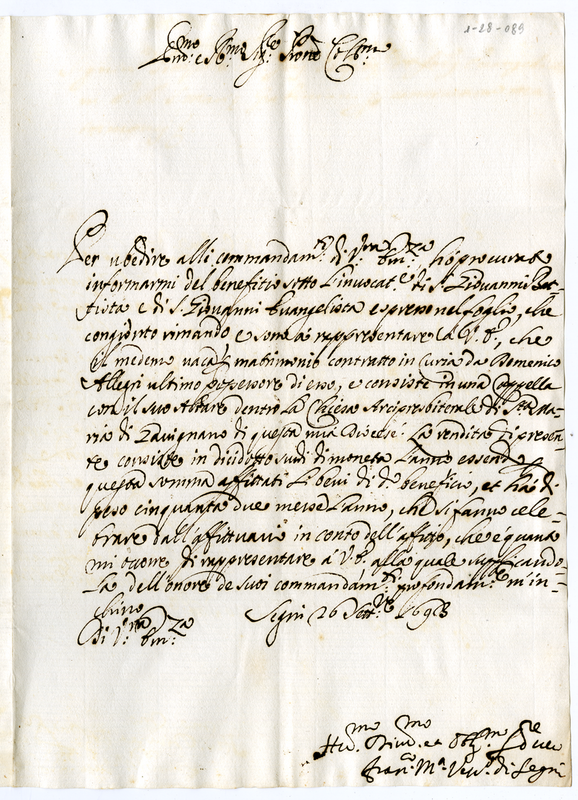 1-28-089
Em.mo e R.mo Sig.re P.rone Col.mo
Per ubedire alli commandam.ti di V.ra Em.za, hò procurato
informarmi del benefitio sotto l'invocat.e di S. Giovanni Bat-
tista e di S. Giovanni Evangelista espresso nel foglio, che
congionto rimando e sono à rappresentare à V. E., che
il medemo vacò p matrimonio contratto in Curia da Domenico
Allegri ultimo possessore di esso, e consiste in una Cappella
con il suo Altare dentro la Chiesa Arcipresbiterale di S.ta Ma-
ria di Gavignano di questa mia Diocese: La rendita di presen-
te consiste in dicidotto scudi di moneta l'anno essendo p
questa somma affittati li beni di d.o benefitio, et há di
peso cinquanta due messe l'anno, che si fanno cele-
brare dall'affittuario in conto dell'affitto, che è quanto
mi occore di rappresentare à V. E. alla quale supplicando-
la dell'onore de suoi commandam.ti profondam.te m'in-
chino
Di V.ra Em.za
Segni 26 Sett.re 1698
Hu.mo Div.mo et Obl.mo Ser.re vero
Fran.co M.a Vesc.o di Segni